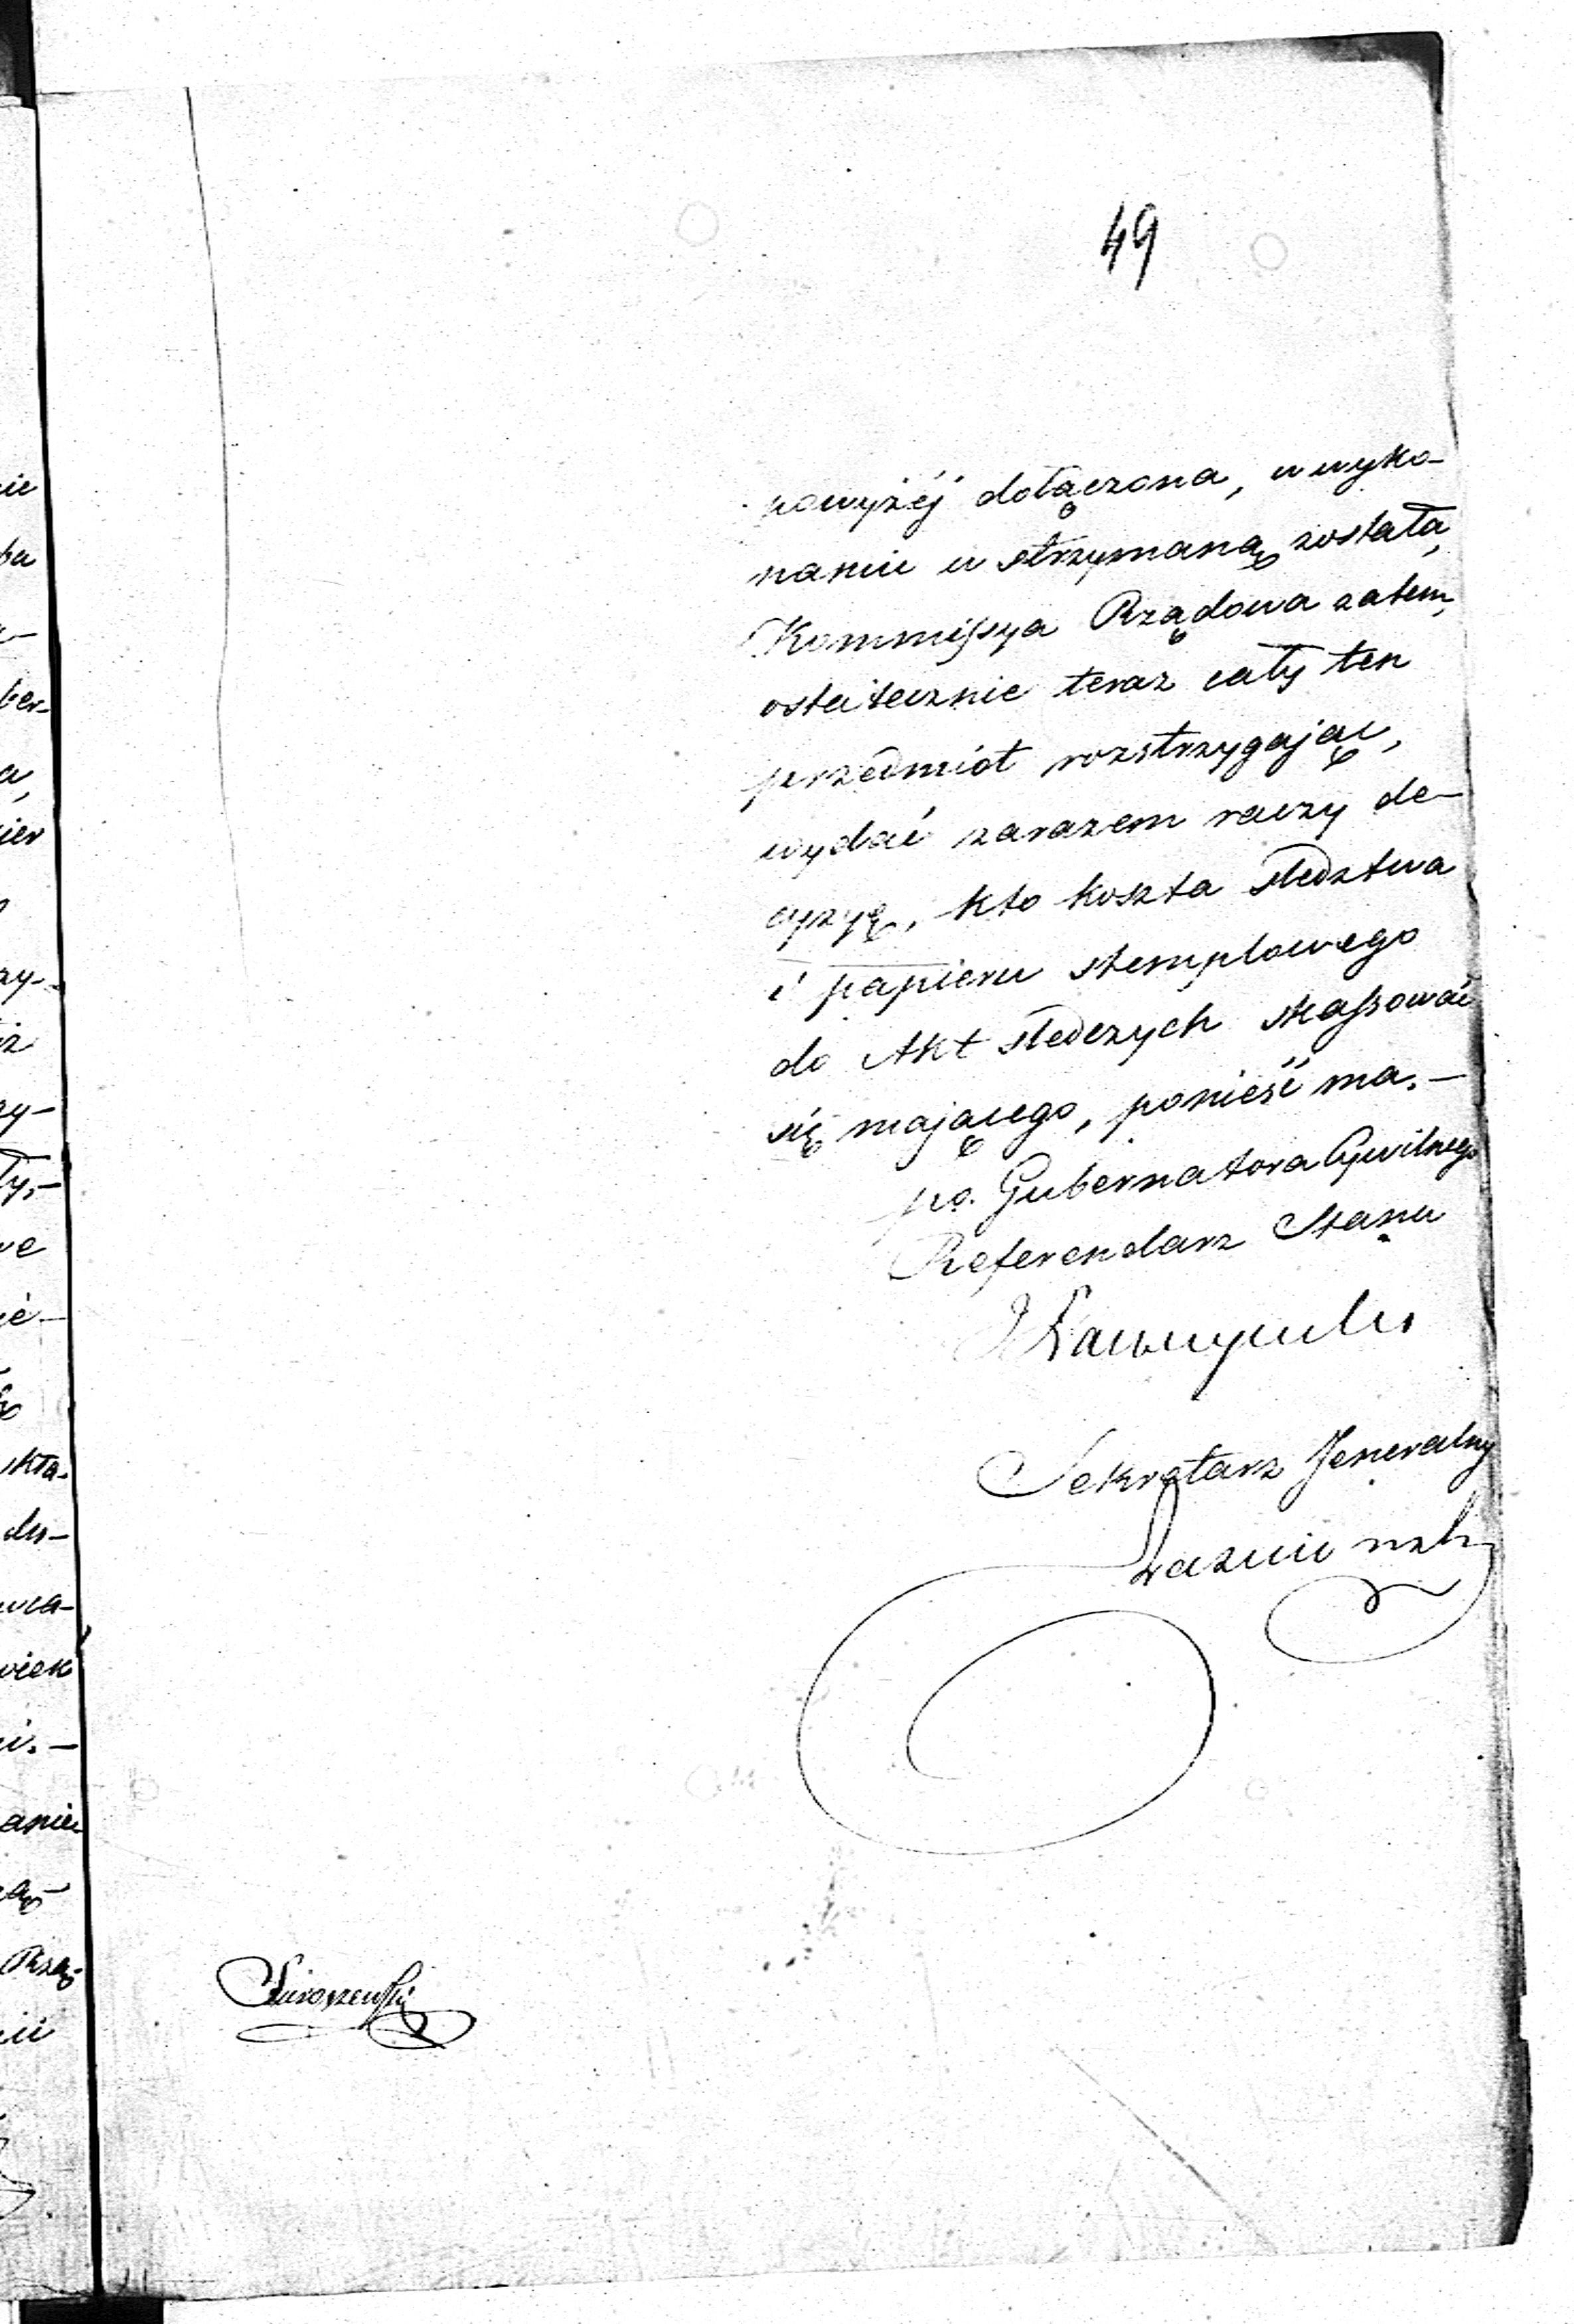 49
powyżéj dołączona, w wyko-
naniu wstrzymaną została,
Kommissya Rządowa zatem,
ostatecznie teraz cały ten
przedmiot rozstrzygając,
wydać zarazem raczy de-
cyzyę, kto koszta śledztwa
i papieru stemplowego
do Akt śledczych skassować
się mającego, ponieść ma.-
po. Gubernatora Cywilnego
Referendarz Stanu
Sekretarz Jeneralny